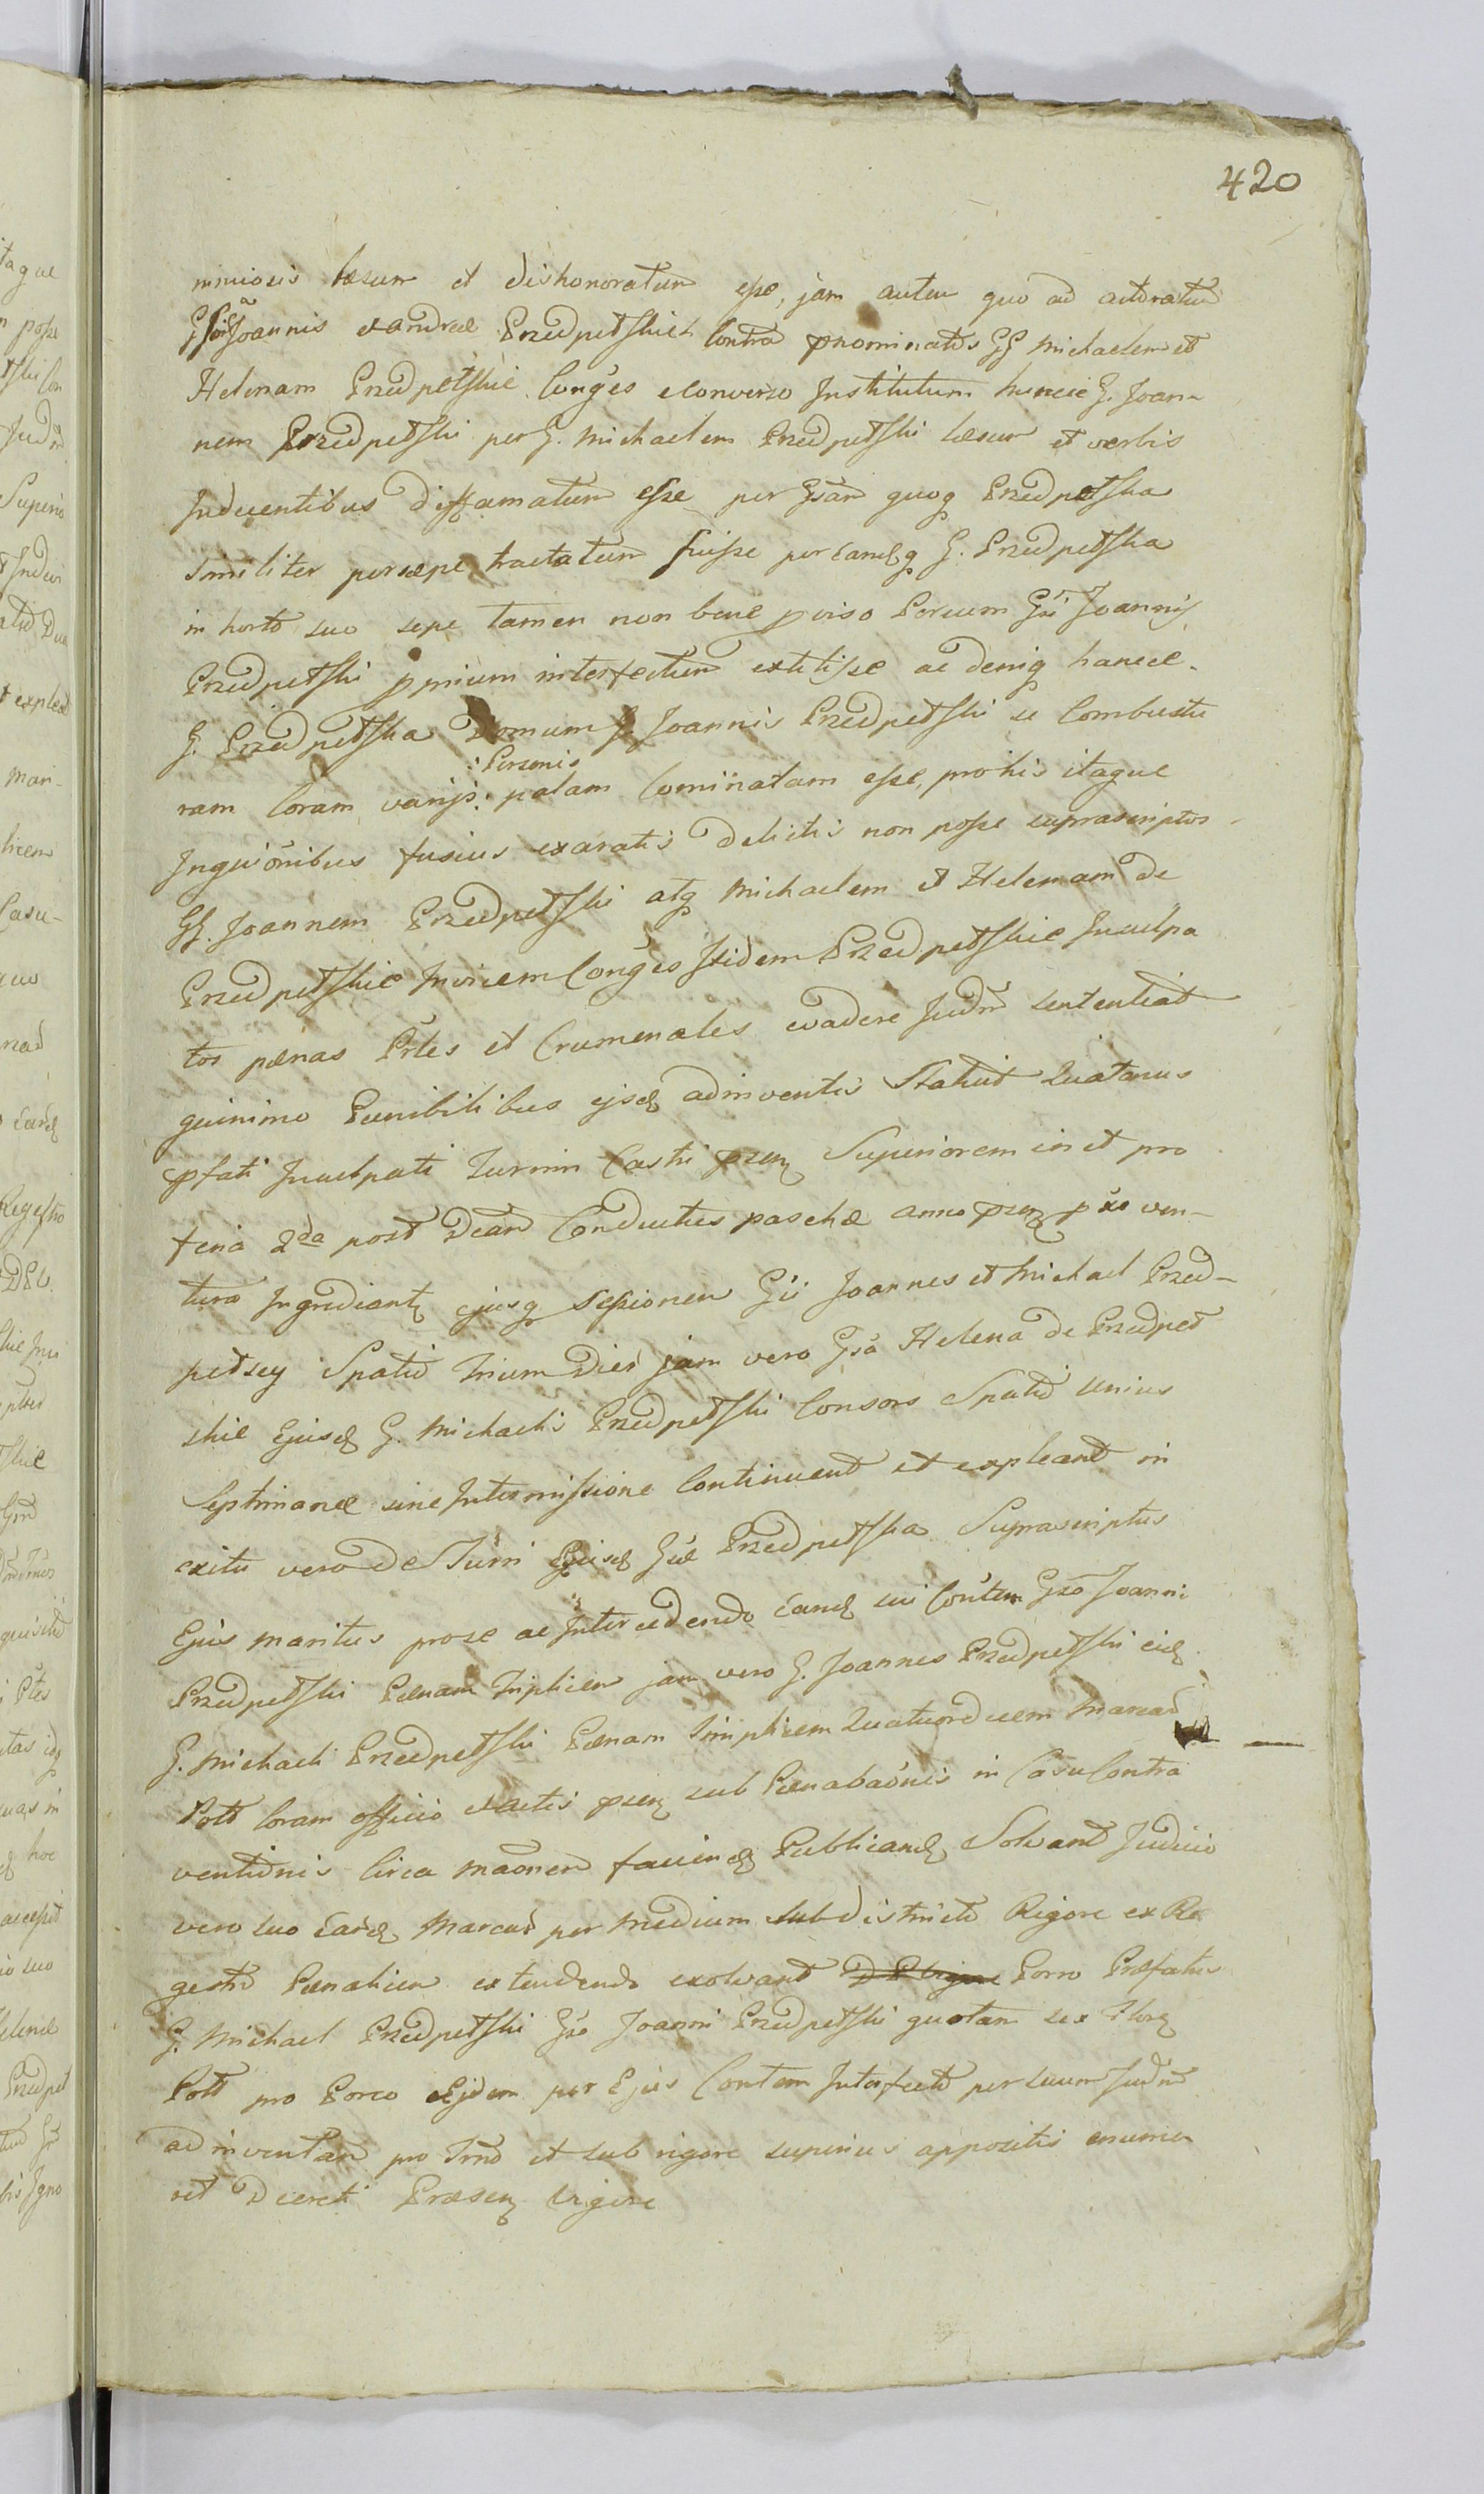 420
miniosis læsum et dishonoratum esse, jam autem quo ad actoratum
Joannis et Andreæ Przedpełskich Contra pnominatos GG Michaelem et
Helenam Przedpełskie Conges e Converso Institutum huncce G. Joan-
nem Przedpełski per G. Michaelem Przedpełski læsum et verbis
Indecentibus Diffamatum esse per Gsam quoq Przedpełska
similiter persæpe tractatum fuisse per eandq G. Przedpełska
in horto suo sepe tamen non bene pviso Porcum Gsi Joannis
Przedpełski pprium interfectum extitisse ac deniq hancce
G. Przedpełska Domum G. Joannis Przedpełski se Combustu
: Personis
ram Coram varijs: palam Cominatam esse, pro his itaque
Inquisõnibus fusius exaratis Delictis non posse suprascriptos
GG. Joannem Przedpełski atq Michaelem et Helenam de
Przedpełskie Invicem Conges Itidem Przedpełskie Inculpa
tos pænas Prles et Crumenales evadere Judm sententiat
quinimo Punibilibus ijsd adinventis Statuit Quatenus
pfati Inculpati Turrim Castri psen Superiorem in et pro
feria 2da post Dcam Conductus paschæ anno psen pxe ven-
tura Ingrediant ejusq sessionem Gsi Joannes et Michael Przed-
pełscy Spatio trium Dier jam vero Gsa Helena de Przedpeł
skie Ejusd G. Michaelis Przedpełski Consors Spatio unius
Septimanæ sine Intermissione Continuent et expleant in
exitu vero de Turri Ejusd Gsæ Przedpełska Suprascriptus
Ejus maritus pro se ac Intercedendo eand sui Contem Gso Joanni
Przedpełski Pænam Triplicem jam vero G. Joannes Przedpełski eid
G. Michaeli Przedpełski Pænam Simplicem Quatuordecem Marcar
Poll Coram officio et actis psen sub Pænabaõnis in Casu Contra
ventionis Circa maõnem faciend Publicand Solvant Judicio
vero suo eard Marcar per medium sub districto Rigore ex Re
gestro Pænalium extendendo exolvant Porro Præfatus
G. Michael Przedpełski Gso Joanni Przedpełski quotam sex Flor
Poll pro Porco Ejdem per Ejus Contem Interfecto per suum Judm
adinventam pro Trno et sub rigore superius appositis enume
ret Decreti Præsen Vigore